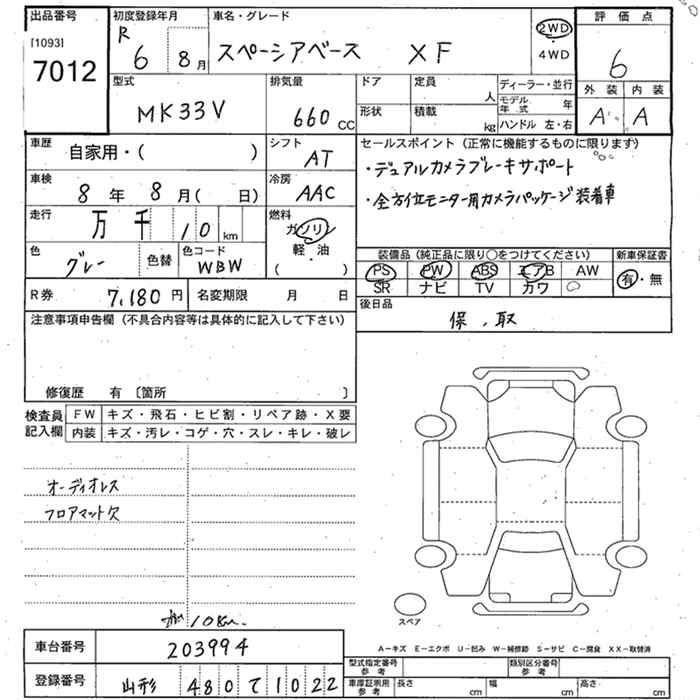 出品番号
[1093]
7012
初度登録年月
R 6 8月
車名・グレード
スペーシアベース XF
2WD
4WD
評価点
6
外装 内装
A A
型式
MK33V
排気量
660 CC
ドア
形状
定員 人
積載 kg
ディーラー・並行
モデル年式 年
ハンドル 左・右
車歴
自家用・( )
シフト
AT
車検
8年 8月( 日)
冷房
AAC
セールスポイント (正常に機能するものに限ります)
・デュアルカメラブレーキサポート
・全方位モニター用カメラパッケージ装着車
走行
万 千 10 km
燃料
ガソリン
軽・油
( )
色
グレー
色替
色コード
WBW
装備品 (純正品に限り○をつけてください)
PS PW ABS エアB AW
SR ナビ TV カワ
新車保証書
有・無
R券
7,180円
名変期限 月 日
後日品
保、取
注意事項申告欄 (不具合内容等は具体的に記入して下さい)
修復歴 有 〔箇所 〕
検査員記入欄
FW キズ・飛石・ヒビ割・リペア跡・X要
内装 キズ・汚レ・コゲ・穴・スレ・キレ・破レ
オーディオレス
フロアマット欠
10km
スペア
A－キズ E－エクボ U－凹み W－補修跡 S－サビ C－腐食 XX－取替済
車台番号
203994
登録番号
山形 480 て 1022
型式指定番号 参考
類別区分番号 参考
車庫証明用 参考
長さ cm
幅 cm
高さ cm